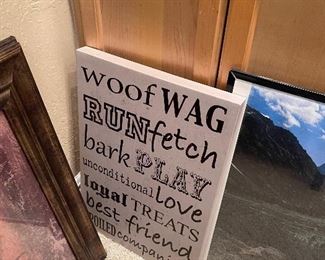 woof WAG
RUN fetch
bark PLAY
unconditional love
loyal TREATS
best friend
SPOILED compani